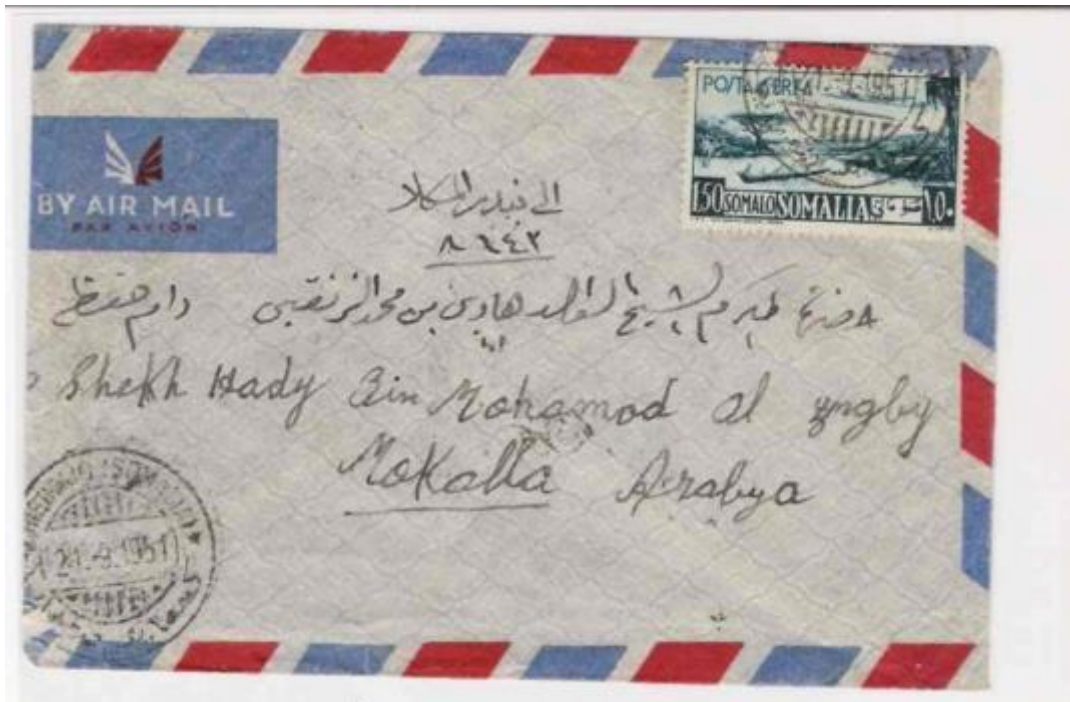 POSTA AEREA
21.-9.1951
1.50 SOMALO SOMALIA ١،٥٠
BY AIR MAIL
PAR AVION
الى بندر المكلا
٨٦٤٢
الشيخ الوالد هادي بن محمد دام حفظه
Shekh Hady Bin Mohamod al
Mokalla Arabya
21.-9.1951